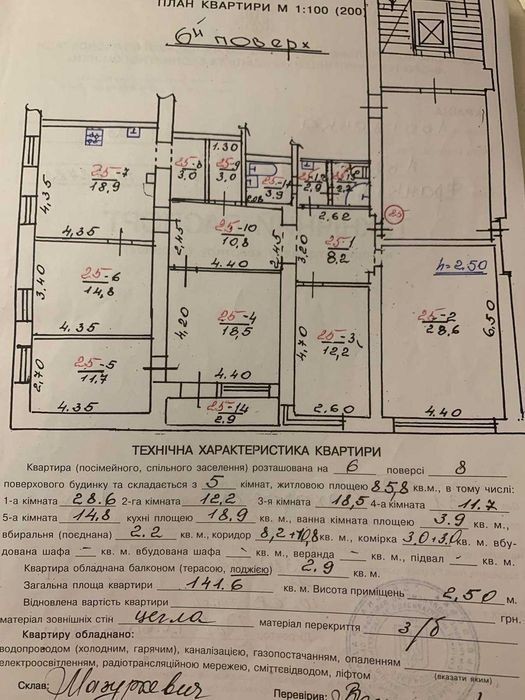 ПЛАН КВАРТИРИ М 1:100 (200
6й поверх
25-7
18,9
4,35
4,35
25-8
3,0
1.30
25-9
3,0
3.9
2,9
2.2
2.62
25
25-10
10,8
2,45
4.40
2.45
3,20
25-1
8,2
h=2.50
3,40
25-6
14,8
4.35
4,20
25-4
18,5
4.40
4,70
25-3
12,2
2,60
25-2
28,6
6,50
4.40
2,70
25-5
11,7
4.35
25-14
2,9
ТЕХНІЧНА ХАРАКТЕРИСТИКА КВАРТИРИ
Квартира (посімейного, спільного заселення) розташована на 6 поверсі 8
поверхового будинку та складається з 5 кімнат, житловою площею 85,8 кв.м., в тому числі:
1-а кімната 28.6 2-га кімната 12,2 3-я кімната 18,5 4-а кімната 11.7
5-а кімната 14.8 кухні площею 18,9 кв. м., ванна кімната площею 3.9 кв. м.,
вбиральня (поєднана) 2.2 кв. м., коридор 8,2+10,8 кв. м., комірка 3.0+3.0 кв. м. вбу-
дована шафа – кв. м. вбудована шафа – кв. м., веранда – кв. м., підвал - кв. м.
Квартира обладнана балконом (терасою, лоджією) 2.9 кв. м.
Загальна площа квартири 141.6 кв. м. Висота приміщень 2,50 м.
Відновлена вартість квартири грн.
матеріал зовнішніх стін цегла матеріал перекриття з/б
Квартиру обладнано:
водопроводом (холодним, гарячим), каналізацією, газопостачанням, опаленням
електроосвітленням, радіотрансляційною мережею, сміттєвідводом, ліфтом
(вказати яким)
Склав: Перевірив: